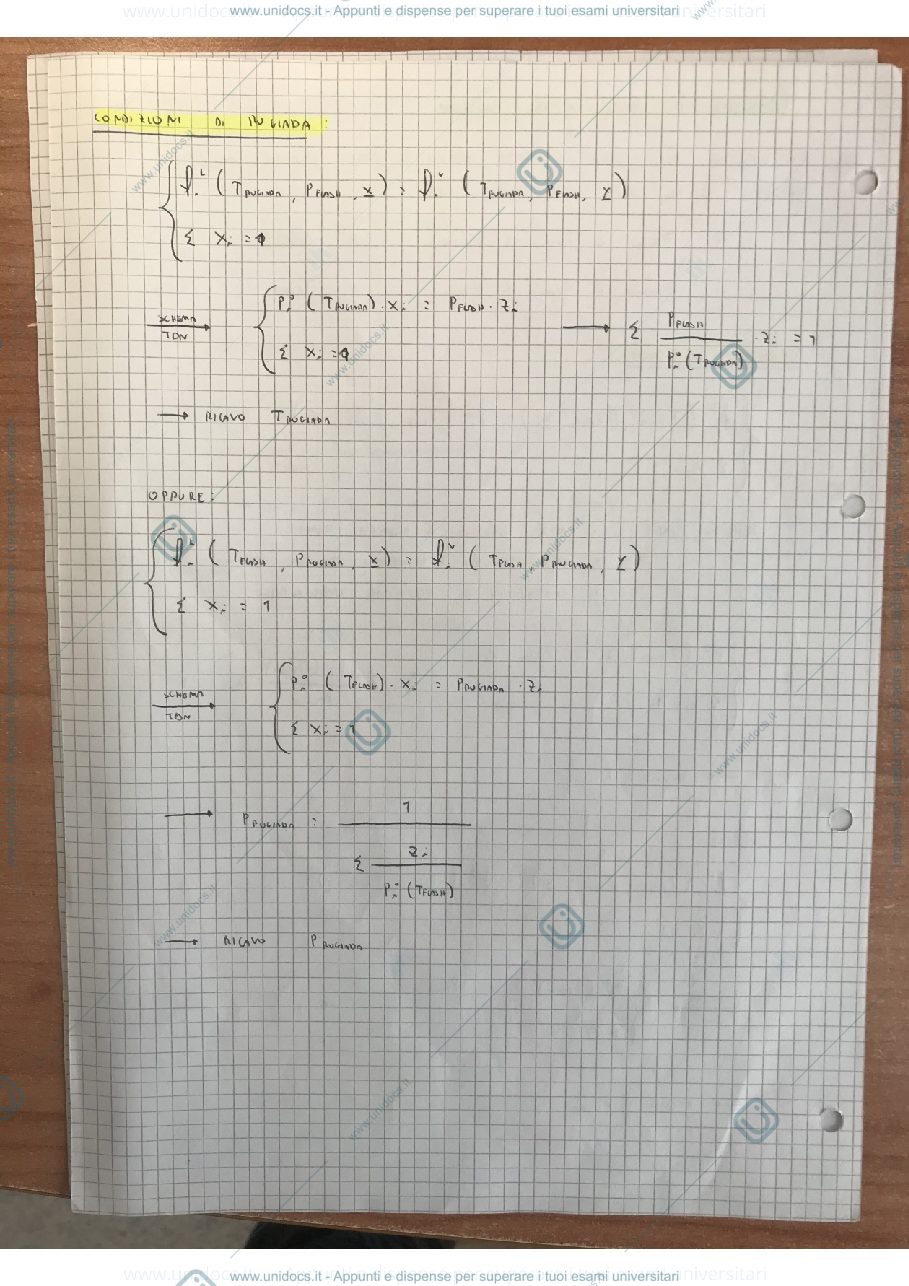 www.unidocs.it - Appunti e dispense per superare i tuoi esami universitari
CONDIZIONI DI RUGIADA:
f_i^L ( T_RUGIADA , P_FLASH , x ) = f_i^V ( T_RUGIADA , P_FLASH , y )
Σ x_i = 1
SCHEMA IDN → P_i° ( T_RUGIADA ) · x_i = P_FLASH · z_i → Σ P_FLASH / P_i° ( T_RUGIADA ) · z_i = 1
Σ x_i = 1
→ RICAVO T_RUGIADA
OPPURE:
f_i^L ( T_FLASH , P_RUGIADA , x ) = f_i^V ( T_FLASH , P_RUGIADA , y )
Σ x_i = 1
SCHEMA IDN → P_i° ( T_FLASH ) · x_i = P_RUGIADA · z_i
Σ x_i = 1
→ P_RUGIADA = 1 / Σ z_i / P_i° ( T_FLASH )
→ RICAVO P_RUGIADA
www.unidocs.it - Appunti e dispense per superare i tuoi esami universitari